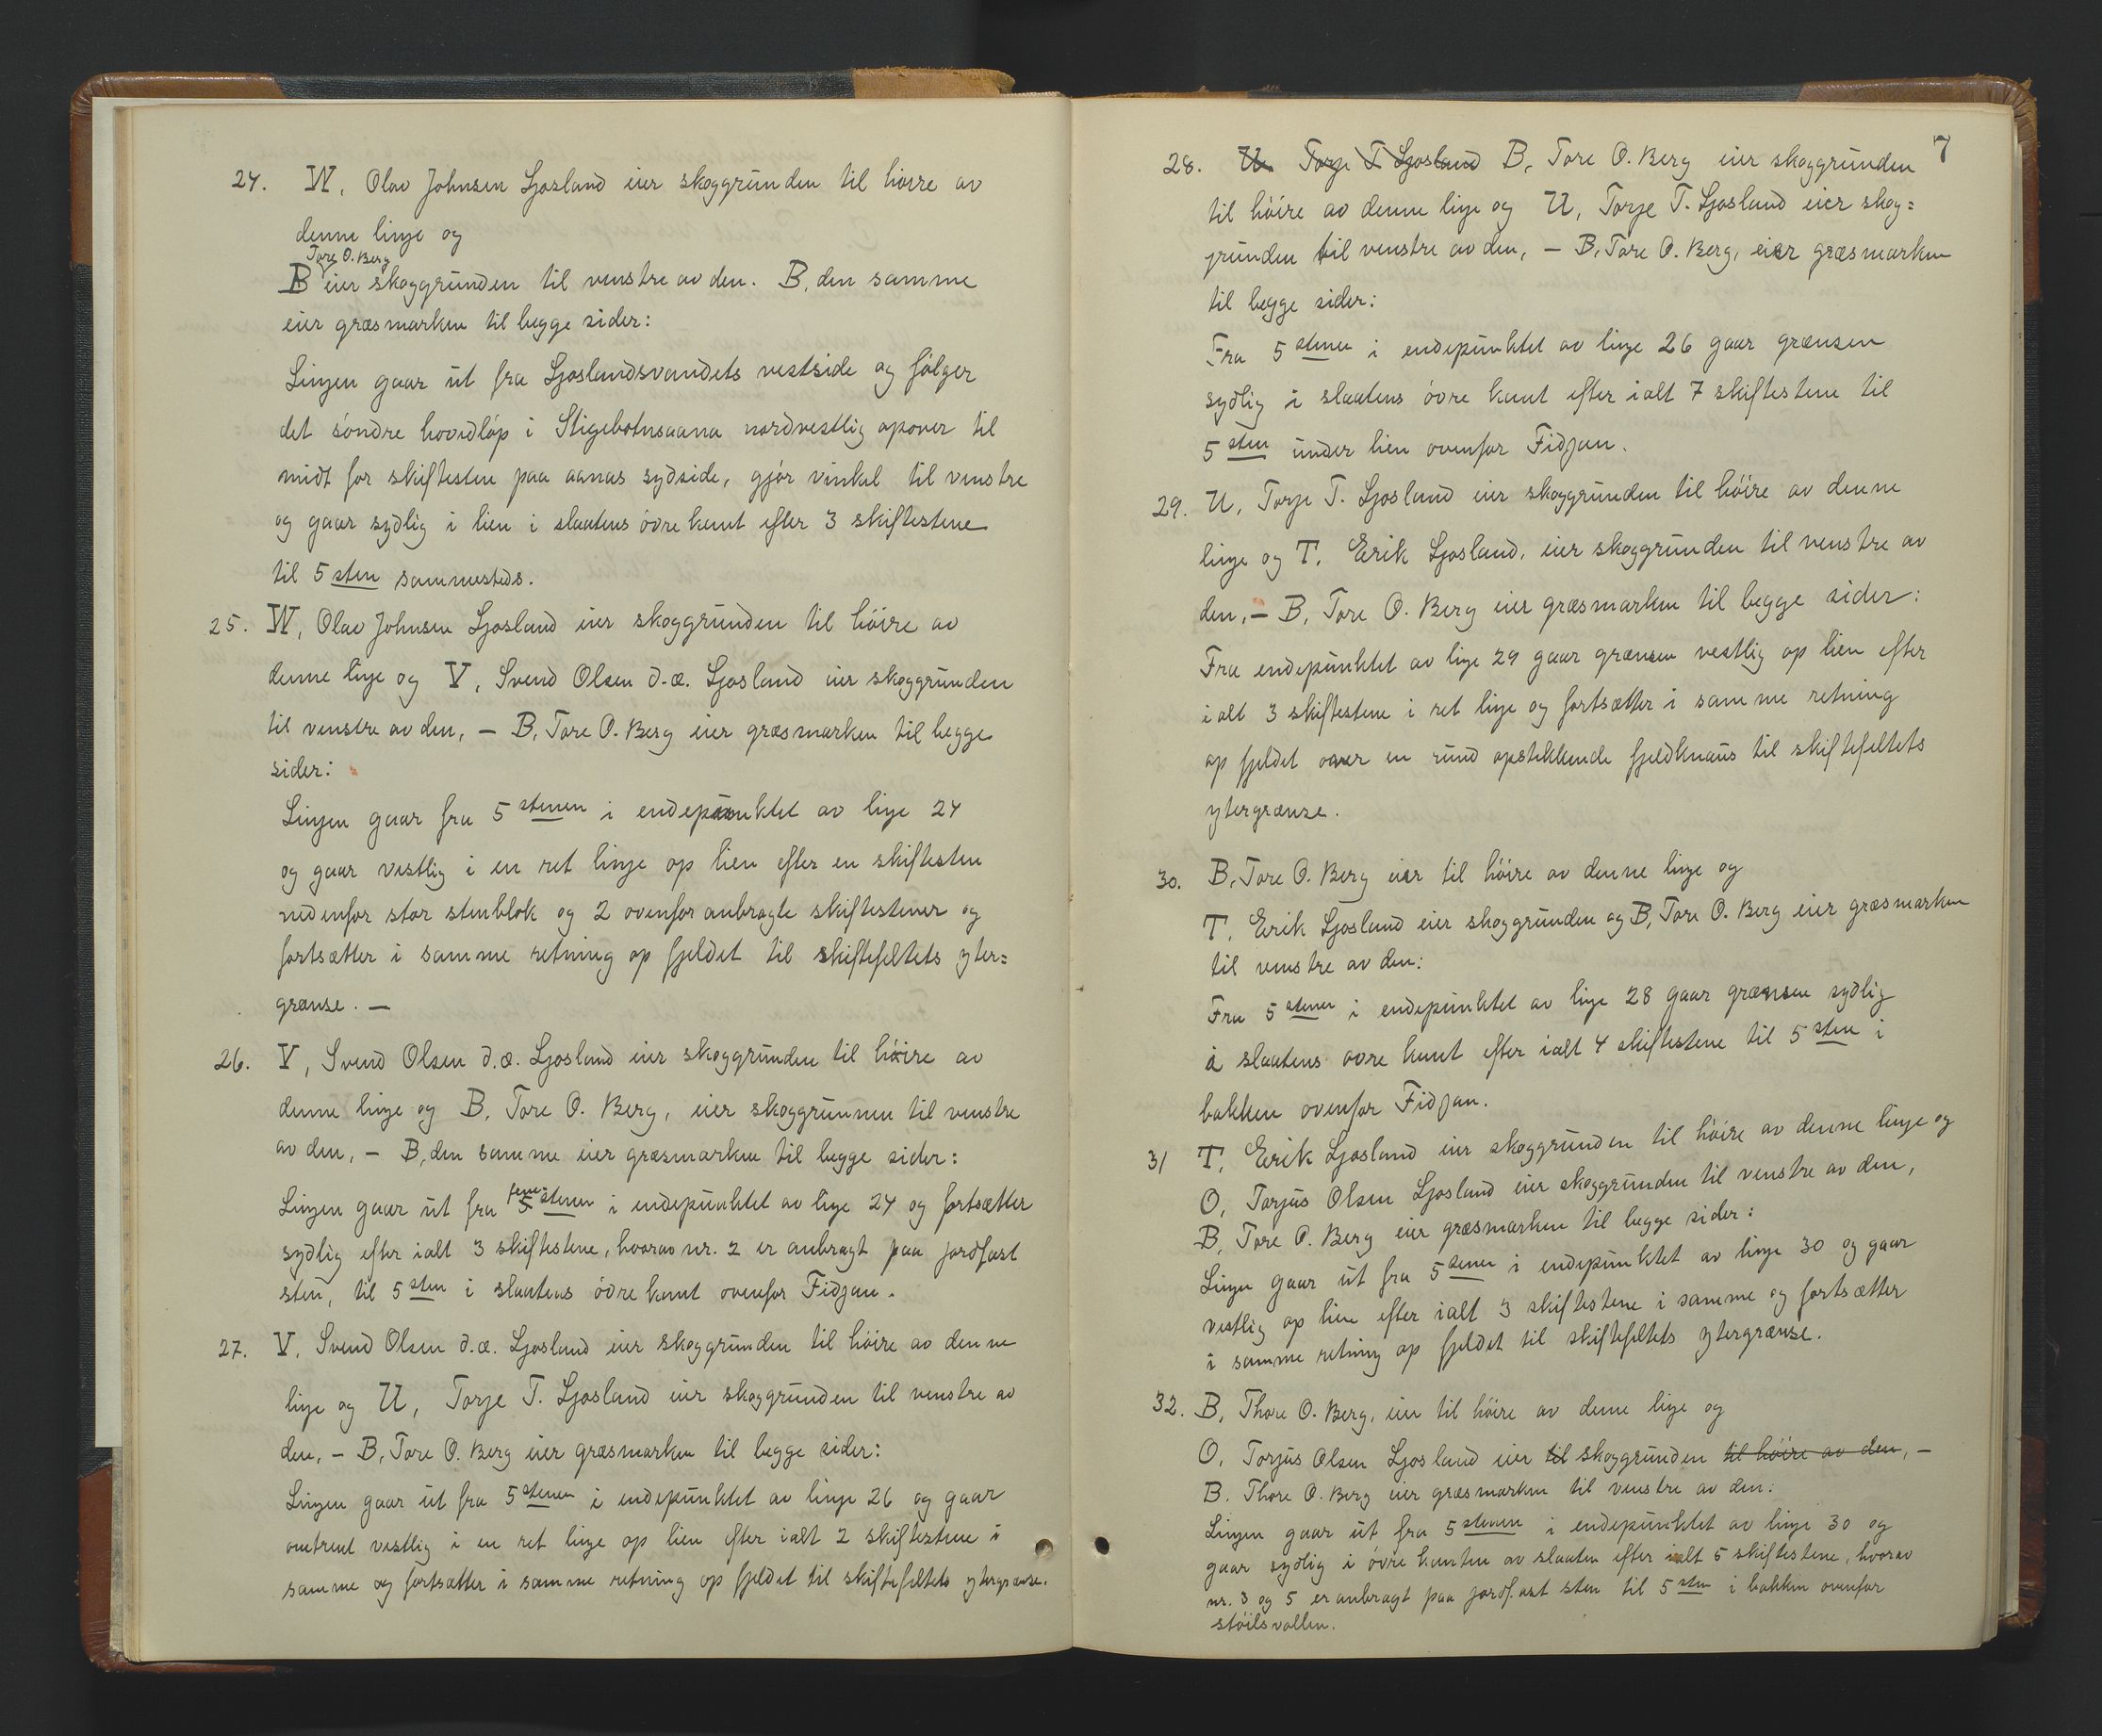 24. W, Olav Johnsen Ljosland eier skoggrunden til høire av
denne linje og
Tore O. Berg
B eier skoggrunden til venstre av den. B, den samme
eier græsmarken til begge sider:
Linjen gaar ut fra Ljoslandsvandets vestside og følger
det søndre hovedløp i Stigebotnsaana nordvestlig opover til
midt for skiftesten paa aanas sydside, gjør vinkel til venstre
og gaar sydlig i lien i slaatens øvre kant efter 3 skiftestene
til 5 sten sammesteds.
25. W, Olav Johnsen Ljosland eier skoggrunden til høire av
denne linje og V, Svend Olsen d.æ. Ljosland eier skoggrunden
til venstre av den, — B, Tore O. Berg eier græsmarken til begge
sider:
Linjen gaar fra 5 stenen i endepunktet av linje 24
og gaar vestlig i en ret linje op lien efter en skiftesten
nedenfor stor stenblok og 2 ovenfor anbragte skiftestener og
fortsætter i samme retning op fjeldet til skiftefeltets yter=
grænse. —
26. V, Svend Olsen d.æ. Ljosland eier skoggrunden til høire av
denne linje og B, Tore O. Berg, eier skoggrunnen til venstre
av den, — B, den samme eier græsmarken til begge sider:
Linjen gaar ut fra 5 stenen i endepunktet av linje 24 og fortsætter
sydlig efter ialt 3 skiftestene, hvorav nr. 2 er anbragt paa jordfast
sten, til 5 sten i slaatens øvre kant ovenfor Fidjan.
27. V. Svend Olsen d.æ. Ljosland eier skoggrunden til høire av denne
linje og U, Torje T. Ljosland eier skoggrunden til venstre av
den, — B, Tore O. Berg eier græsmarken til begge sider:
Linjen gaar ut fra 5 stenen i endepunktet av linje 26 og gaar
omtrent vestlig i en ret linje op lien efter ialt 2 skiftestene i
samme og fortsætter i samme retning op fjeldet til skiftefeltets ytergrænse.
7
28. U. Torje T. Ljosland B, Tore O. Berg eier skoggrunden
til høire av denne linje og U, Torje T. Ljosland eier skog=
grunden til venstre av den, — B, Tore O. Berg, eier græsmarken
til begge sider:
Fra 5 stenen i endepunktet av linje 26 gaar grænsen
sydlig i slaatens øvre kant efter ialt 7 skiftestene til
5 sten under lien ovenfor Fidjan.
29. U, Torje T. Ljosland eier skoggrunden til høire av denne
linje og T, Erik Ljosland, eier skoggrunden til venstre av
den, — B, Tore O. Berg eier græsmarken til begge sider:
Fra endepunktet av linje 29 gaar grænsen vestlig op lien efter
ialt 3 skiftestene i ret linje og fortsætter i samme retning
op fjeldet over en rund opstikkende fjeldknaus til skiftefeltets
ytergrænse.
30. B, Tore O. Berg eier til høire av denne linje og
T, Erik Ljosland eier skoggrunden og B, Tore O. Berg eier græsmarken
til venstre av den:
Fra 5 stenen i endepunktet av linje 28 gaar grænsen sydlig
i slaatens øvre kant efter ialt 4 skiftestene til 5 sten i
bakken ovenfor Fidjan.
31 T, Erik Ljosland eier skoggrunden til høire av denne linje og
O, Torjus Olsen Ljosland eier skoggrunden til venstre av den,
B, Tore O. Berg eier græsmarken til begge sider:
Linjen gaar ut fra 5 stenen i endepunktet av linje 30 og gaar
vestlig op lien efter ialt 3 skiftestene i samme og fortsætter
i samme retning op fjeldet til skiftefeltets ytergrænse.
32. B, Thore O. Berg, eier til høire av denne linje og
O, Torjus Olsen Ljosland eier til skoggrunden til høire av den, —
B. Thore O. Berg eier græsmarken til venstre av den:
Linjen gaar ut fra 5 stenen i endepunktet av linje 30 og
gaar sydlig i øvre kanten av slaaten efter ialt 5 skiftestene, hvorav
nr. 3 og 5 er anbragt paa jordfast sten til 5 sten i bakken ovenfor
støilsvollen.